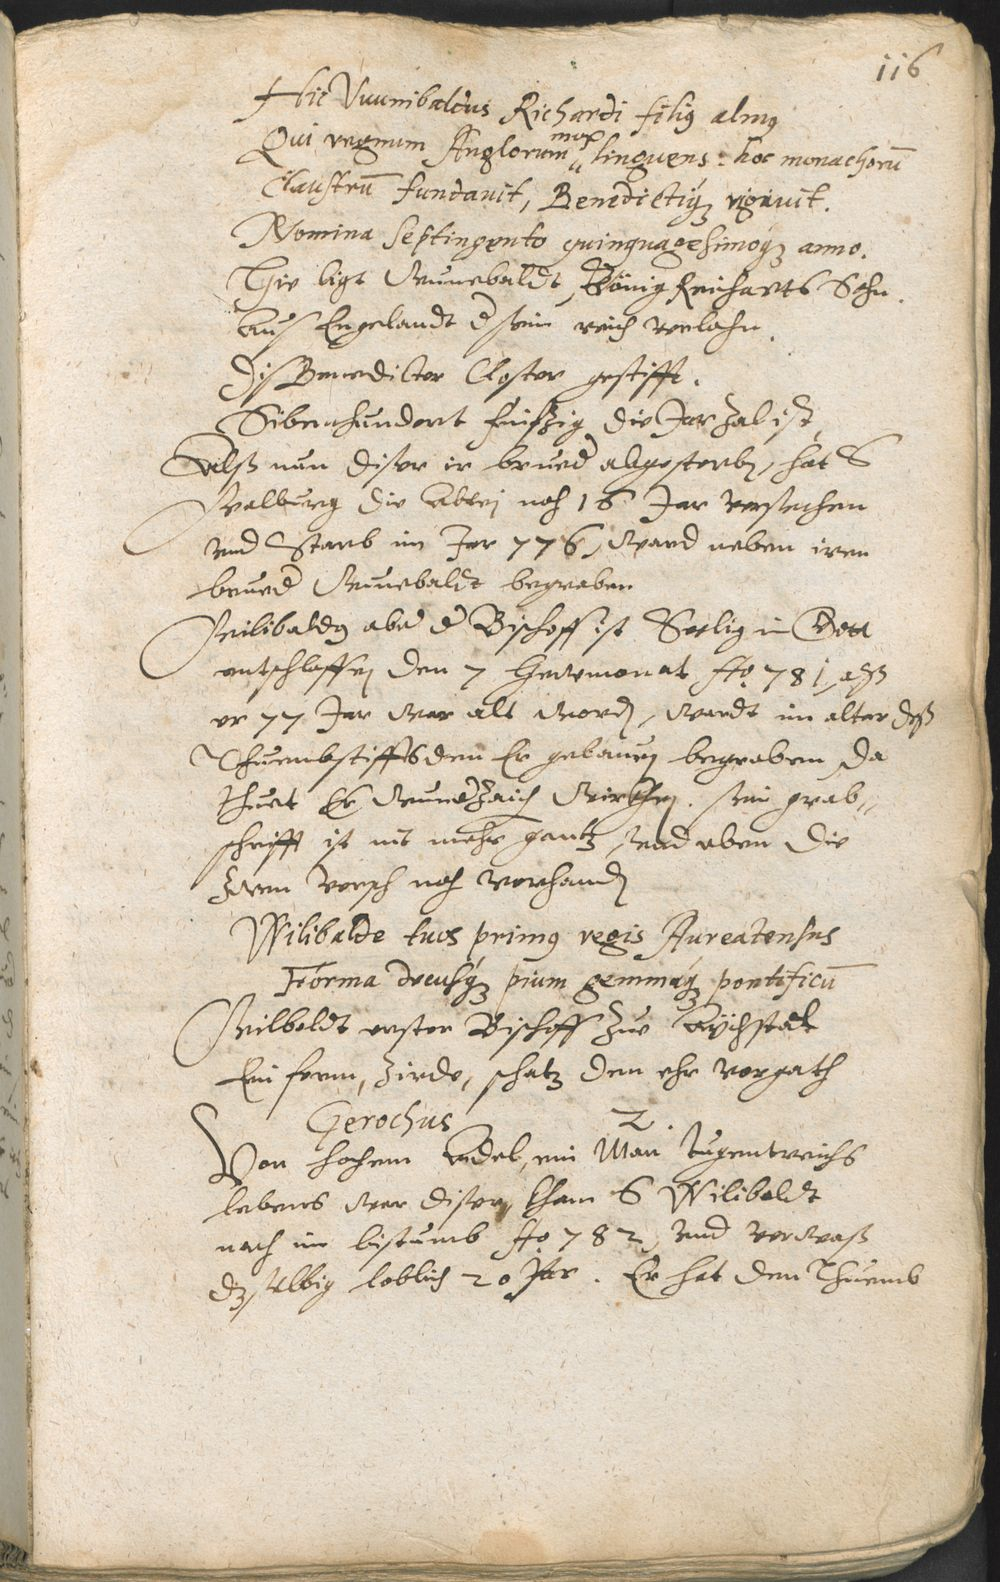 116
Hic Vuunibaldus Richardi filiꝰ almꝰ
Qui regnum Anglorum mox linquens: hoc monachorū
Claustrū fundavit, Benedictiqꝫ rigavit.
Nomina Septingento quinquagesimoqꝫ anno.
Hie ligt Wunebaldt, König Reicharts Sohn.
Auß Engelandt d sein reich verlohn.
Diß Benedicter Closter gestifft.
Sibenhundert funfzig die Jar zal ist,
Alß nun diser ir brued abgestorben, hat S
Walburg die Abtei noch 16 Jar versechen
und Starb im Jar 776, Ward neben iren
brued Wunebaldt begraben
Wilibaldꝰ aber d Bischoff ist Seelig in Gott
entschlaffen den 7 Heumonat Ao 781, alß
er 77 Jar war alt worden, Wardt im altar deß
Thuembstiffts den Er gebauen begraben, da
thuet Er Wunderzaich Wirkhen. sein grab„
schrifft ist nit mehr gantz, und eben die
zwen versch noch verhanden
Wilibalde tuos primꝰ regis Aureatenses
Forma decusqꝫ pium gemmaqꝫ pontificū
Wilboldt erster Bischoff zue Aychstet
Ein form, zirde, schatz dem ehr vorgath
Gerochus 2.
Von hochem Adel, ein Man tugentreichs
lebens war diser, kham S Wilibaldt
nach im bistumb Ao 782, und verwaß
dz selbig loblich 20 Jar. Er hat den Thuemb